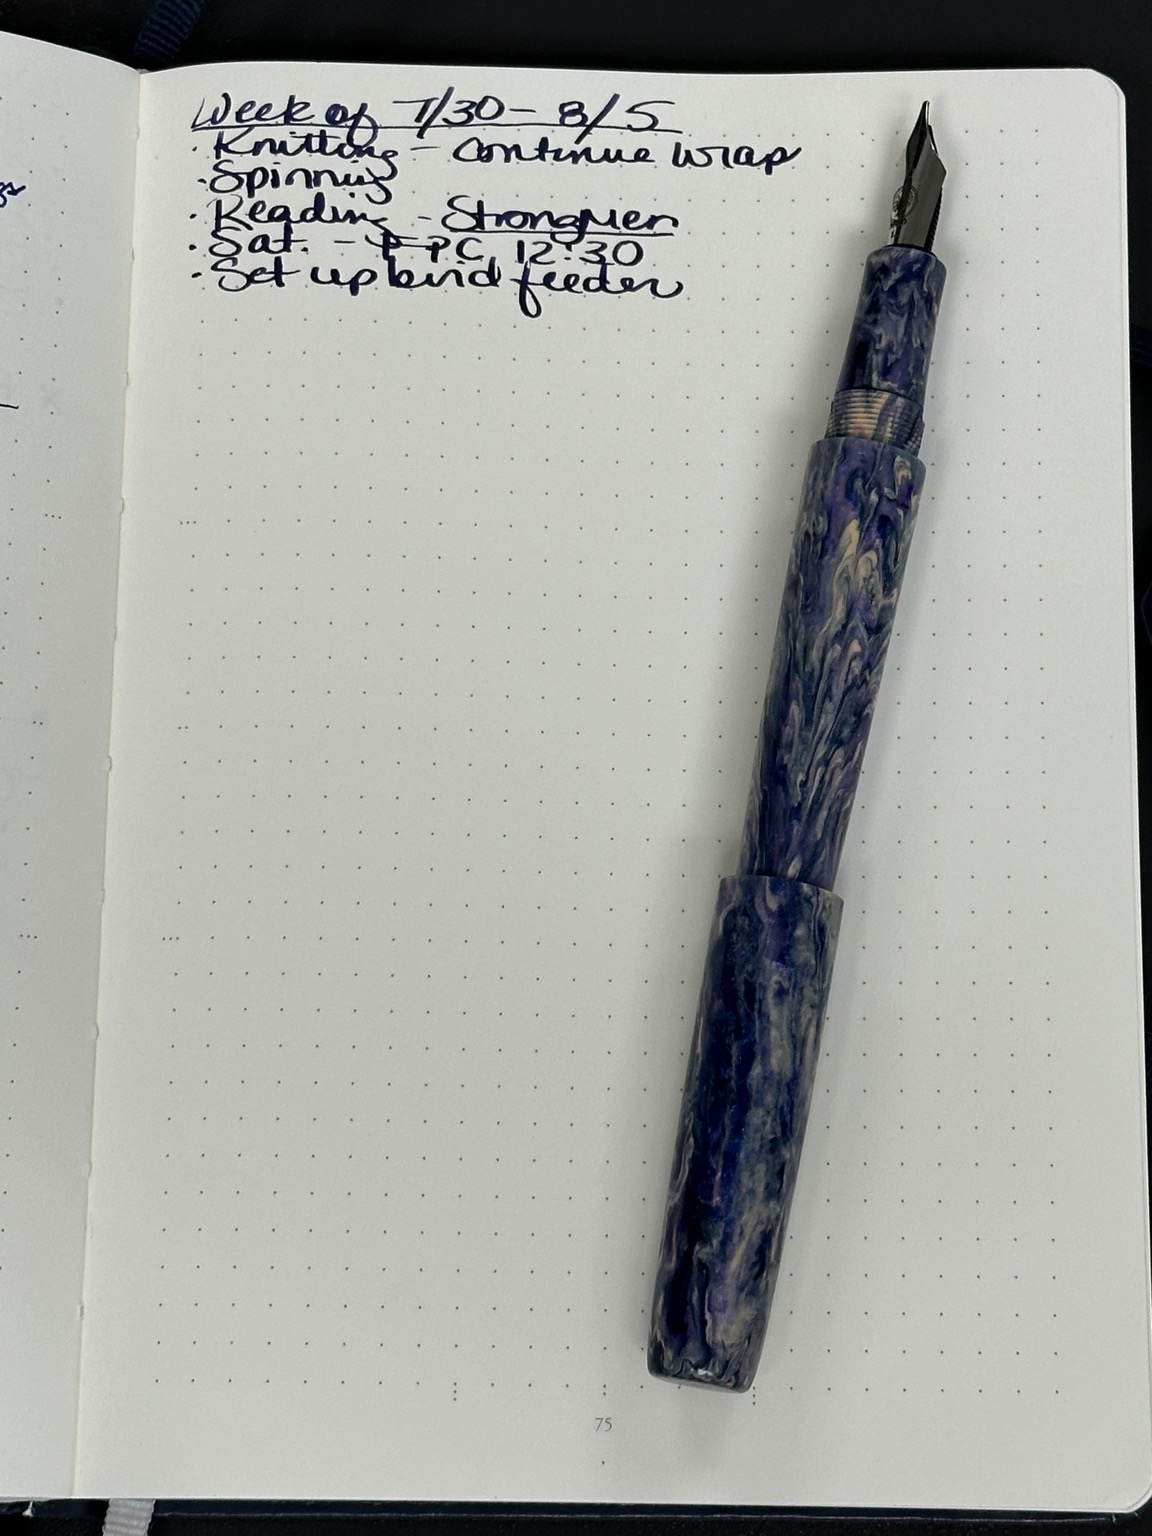 Week of 7/30 - 8/5
· Knitting - continue wrap
· Spinning
· Reading - StrongMen
· Sat. - PPC 12:30
· Set up bird feeder
75